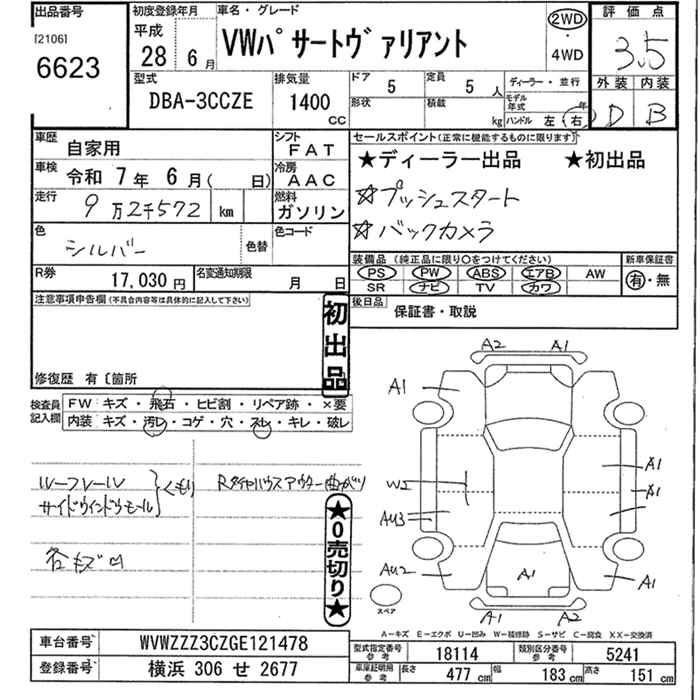 出品番号
[2106]
6623
初度登録年月
平成
28 6月
車名・グレード
VWパサートヴァリアント
2WD
・
4WD
評価点
3.5
外装 内装
D B
型式
DBA-3CCZE
排気量
1400
cc
ドア 5
定員 5人
形状
積載 kg
ディーラー・並行
モデル年式 年
ハンドル 左 右
車歴 自家用
シフト FAT
車検 令和 7年 6月( 日)
冷房 AAC
走行 9万2千572 km
燃料 ガソリン
色 シルバー
色替
色コード
R券 17,030円
名変通知期限 月 日
セールスポイント(正常に機能するものに限ります)
★ディーラー出品 ★初出品
☆プッシュスタート
☆バックカメラ
装備品 (純正品に限り○をつけてください)
新車保証書
PS PW ABS エアB AW
SR ナビ TV カワ
有・無
後日品
保証書・取説
注意事項申告欄(不具合内容等は具体的に記入して下さい)
初出品
修復歴 有〔箇所
検査員記入欄
FW キズ・飛石・ヒビ割・リペア跡・×要
内装 キズ・汚レ・コゲ・穴・スレ・キレ・破レ
ルーフレール
サイドウインドウモール
くもり
Rタイヤハウスアウター曲がり
各キズ凹
★0売切り★
A2 A1
A1
W2
A1
A1
AU3
AU2
A1
A1
A1 A2
スペア
A-キズ E-エクボ U-凹み W-補修跡 S-サビ C-腐食 XX-交換済
車台番号 WVWZZZ3CZGE121478
登録番号 横浜 306 せ 2677
型式指定番号 参考 18114
類別区分番号 参考 5241
車庫証明用 参考 長さ 477 cm 幅 183 cm 高さ 151 cm